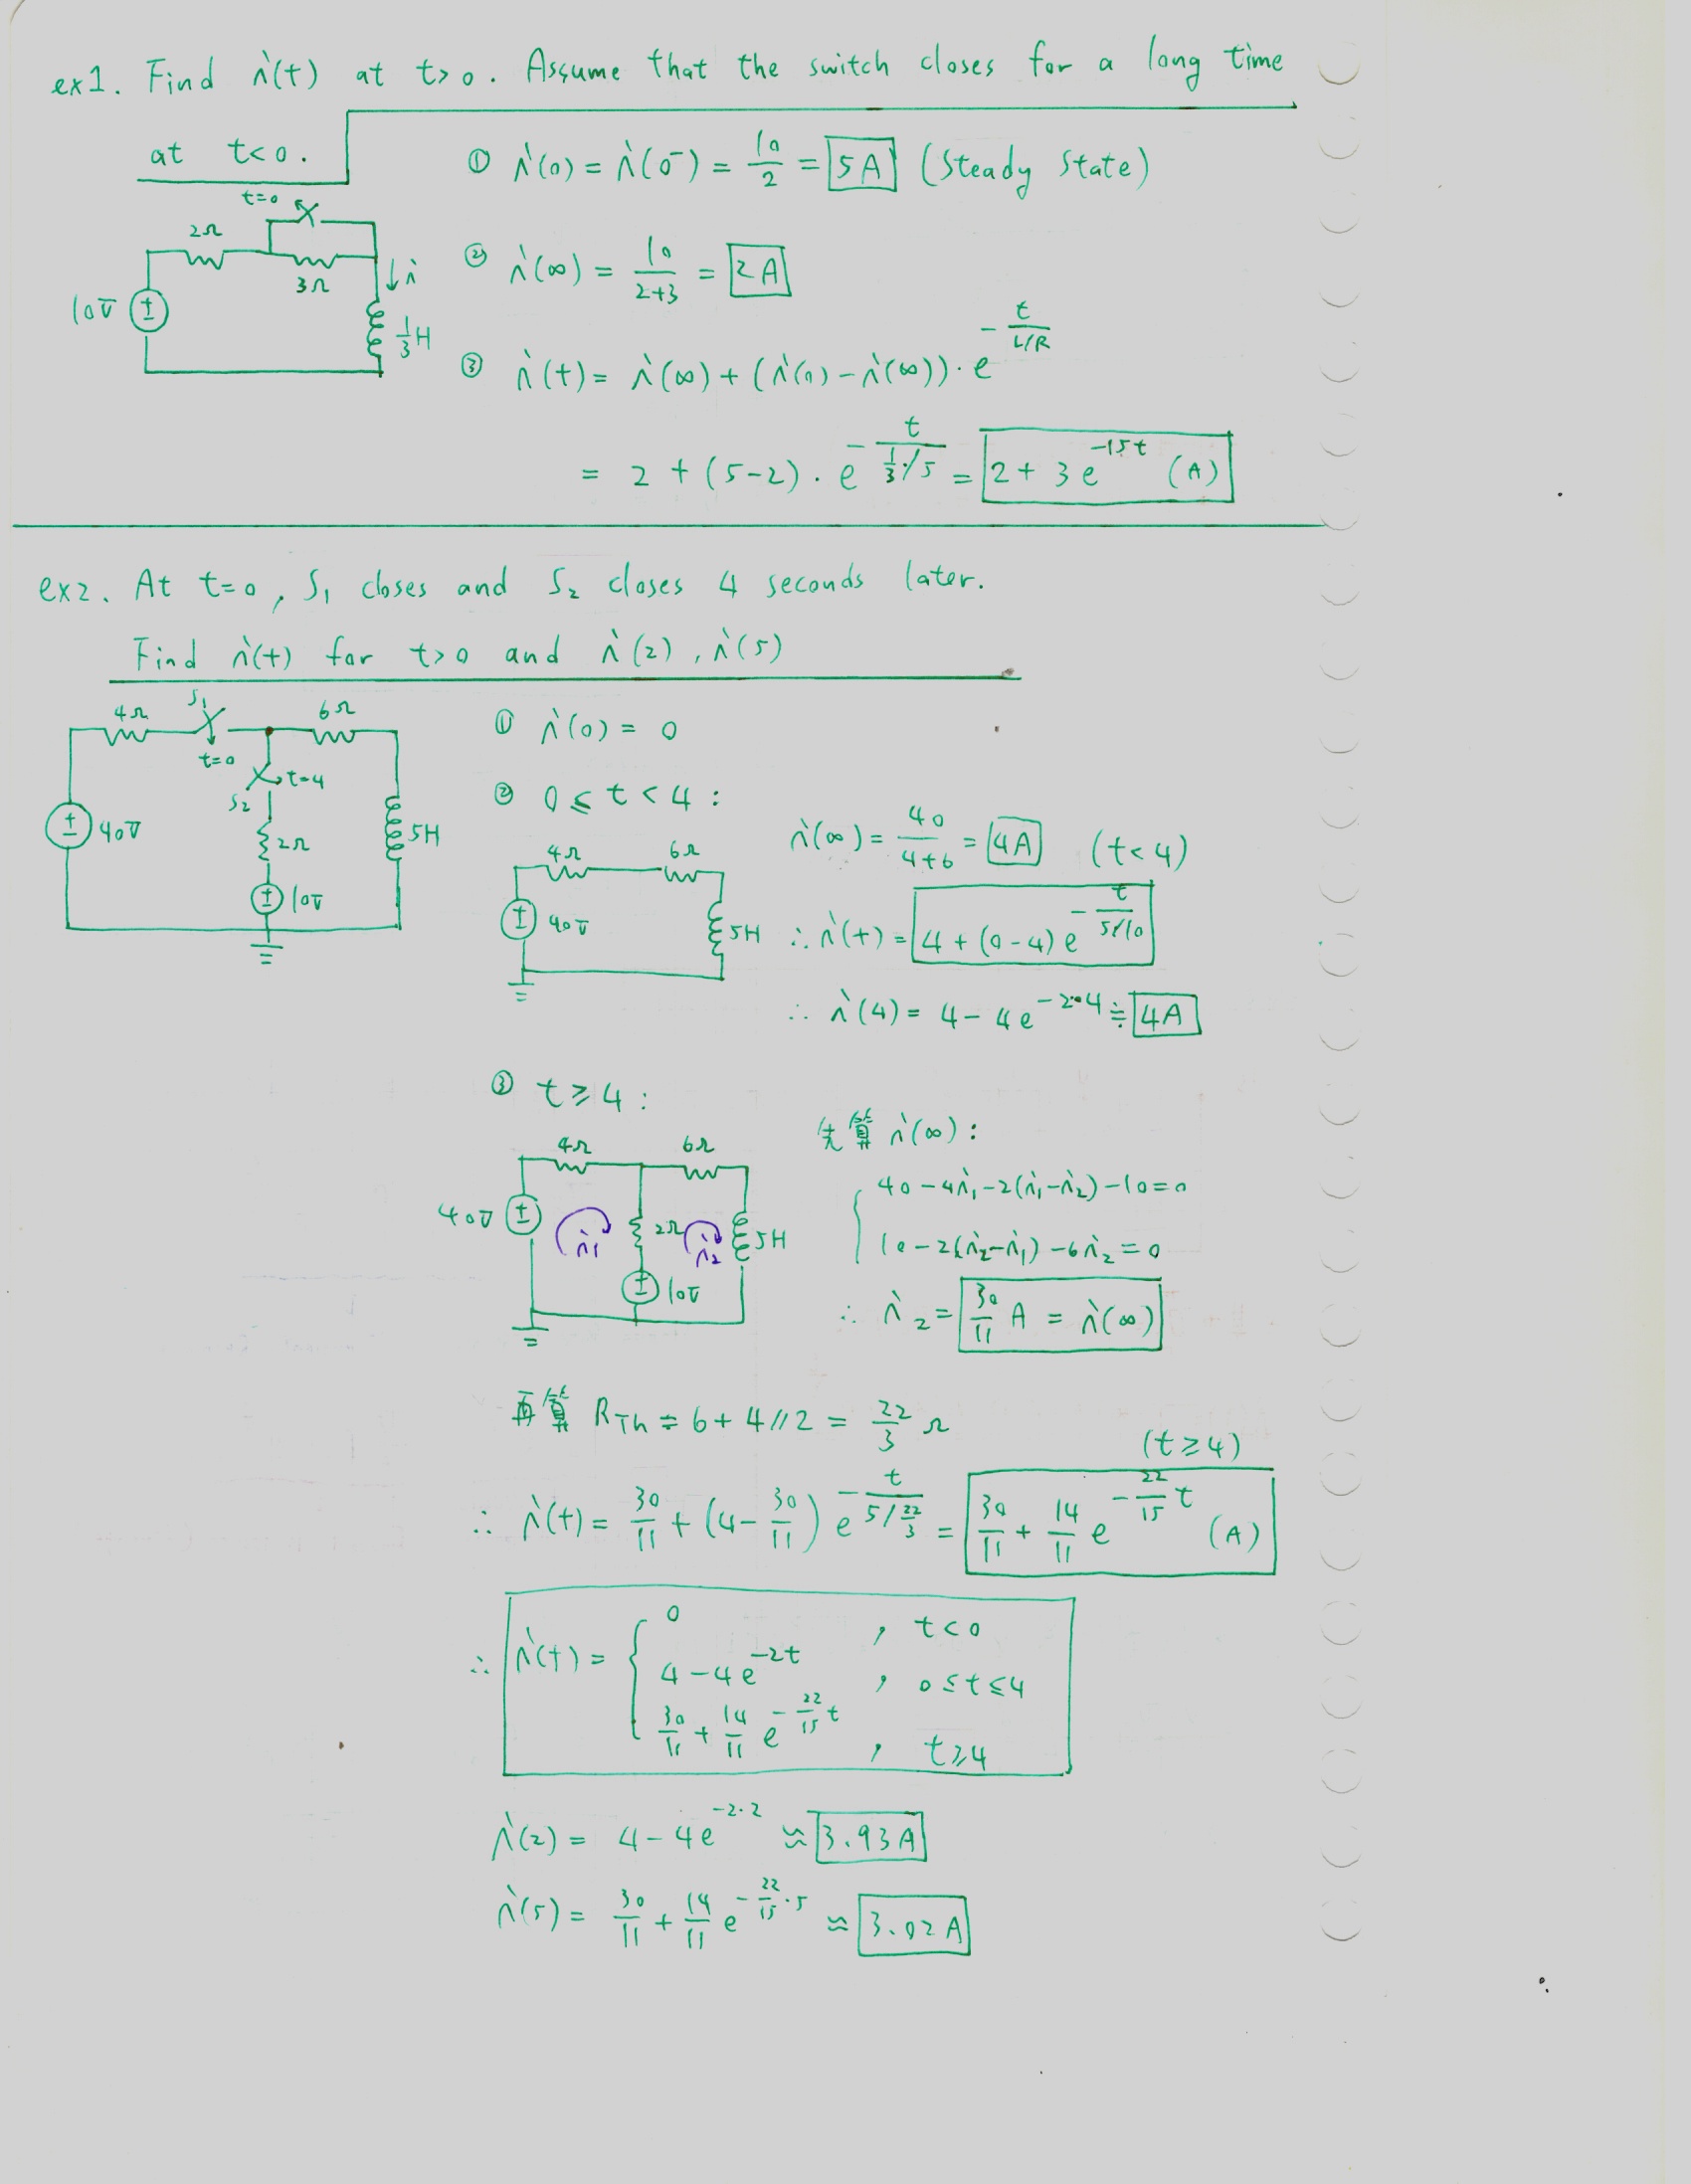 ex1. Find i(t) at t>0. Assume that the switch closes for a long time
at t<0.
① i(0) = i(0⁻) = 10/2 = 5A (Steady State)
t=0
2Ω
3Ω
i
10V
1/3 H
② i(∞) = 10/(2+3) = 2A
③ i(t) = i(∞) + (i(0) - i(∞)) · e^(-t/(L/R))
= 2 + (5-2) · e^(-t/(1/3/5)) = 2 + 3e^(-15t) (A)
ex2. At t=0, S₁ closes and S₂ closes 4 seconds later.
Find i(t) for t>0 and i(2), i(5)
4Ω S₁ 6Ω
t=0
t=4
S₂
40V 2Ω 5H
10V
① i(0) = 0
② 0 ≤ t < 4 :
4Ω 6Ω
40V 5H
i(∞) = 40/(4+6) = 4A (t<4)
∴ i(t) = 4 + (0-4) e^(-t/(5/10))
∴ i(4) = 4 - 4e^(-2·4) ≒ 4A
③ t ≥ 4 :
4Ω 6Ω
40V i₁ 2Ω i₂ 5H
10V
先算 i(∞) :
40 - 4i₁ - 2(i₁-i₂) - 10 = 0
10 - 2(i₂-i₁) - 6i₂ = 0
∴ i₂ = 30/11 A = i(∞)
再算 R_Th = 6 + 4//2 = 22/3 Ω
(t ≥ 4)
∴ i(t) = 30/11 + (4 - 30/11) e^(-t/(5/(22/3))) = 30/11 + 14/11 e^(-22/15 t) (A)
∴ i(t) = { 0 , t<0
4 - 4e^(-2t) , 0≤t≤4
30/11 + 14/11 e^(-22/15 t) , t≥4
i(2) = 4 - 4e^(-2·2) ≈ 3.93A
i(5) = 30/11 + 14/11 e^(-22/15·5) ≈ 3.02A